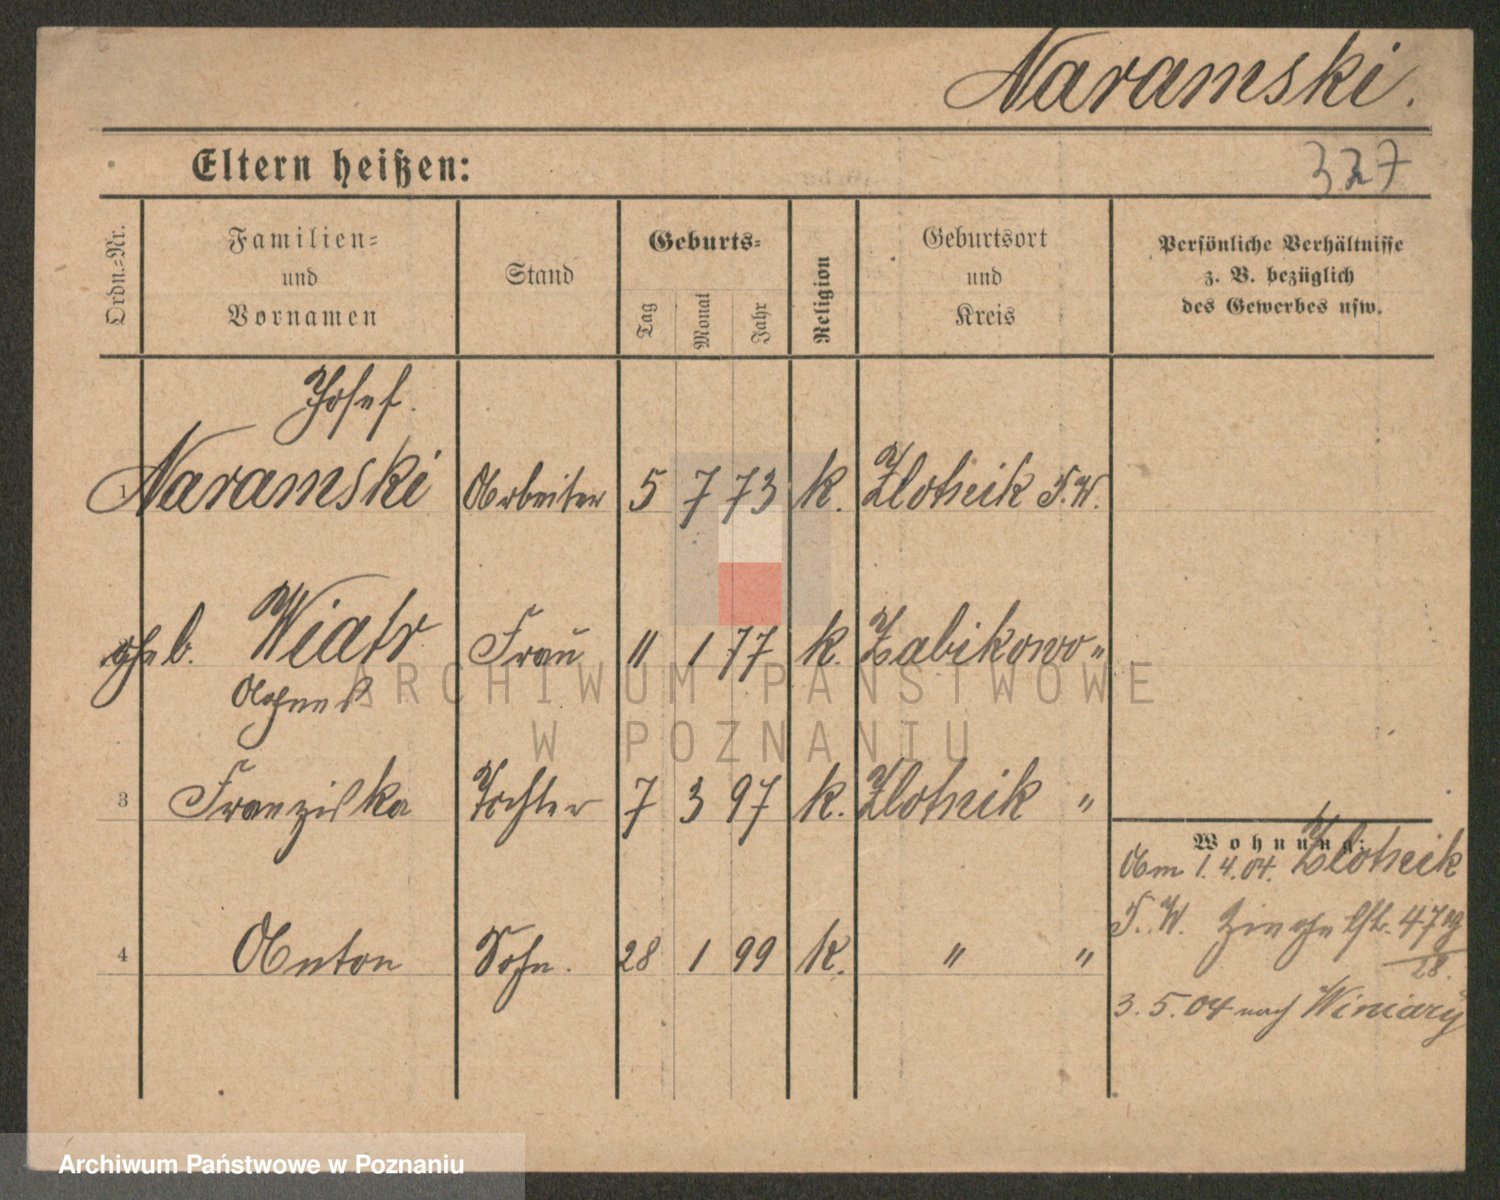 Naramski.
Eltern heißen:
327
Ordn.-Nr.
Familien-
und
Vornamen
Stand
Geburts-
Tag
Monat
Jahr
Religion
Geburtsort
und
Kreis
Persönliche Verhältnisse
z. B. bezüglich
des Gewerbes usw.
Josef.
1 Naramski Arbeiter 5 7 73 k. Zlotnik P. W.
geb. Wiatr Frau " 1 77 k. Zabikowo "
Agnes
3 Franziska Tochter 7 3 97 k. Zlotnik "
4 Anton Sohn. 28 1 99 k. " "
Wohnung:
Am 1.4.04. Zlotnik
P. W. 47
28.
3.5.04 nach Winiary
ARCHIWUM PAŃSTWOWE
W POZNANIU
Archiwum Państwowe w Poznaniu